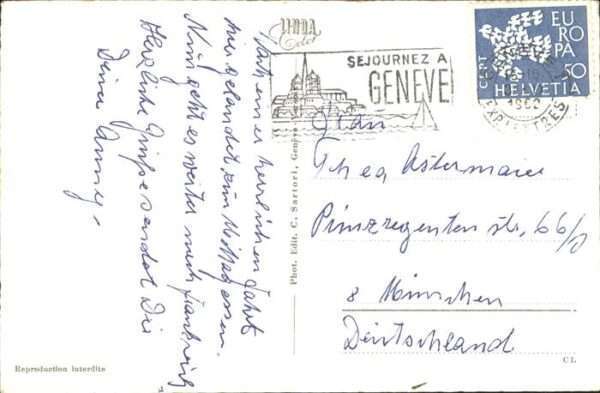 Nach einer herrlichen Fahrt
hier gelandet zum Mittagessen.
Nun geht es weiter nach Frankreich
Herzliche Grüsse sendet Dir
Deine Anney,
LINDA
Color
SEJOURNEZ A
GENEVE
EUROPA
CEPT
50
HELVETIA
1962
EXP. LETTRES
Phot. Edit. C. Sartori, Genève
Frau
Thea Astermaier
Prinzregenten str. 66/0
8 München
Deutschland
Reproduction interdite